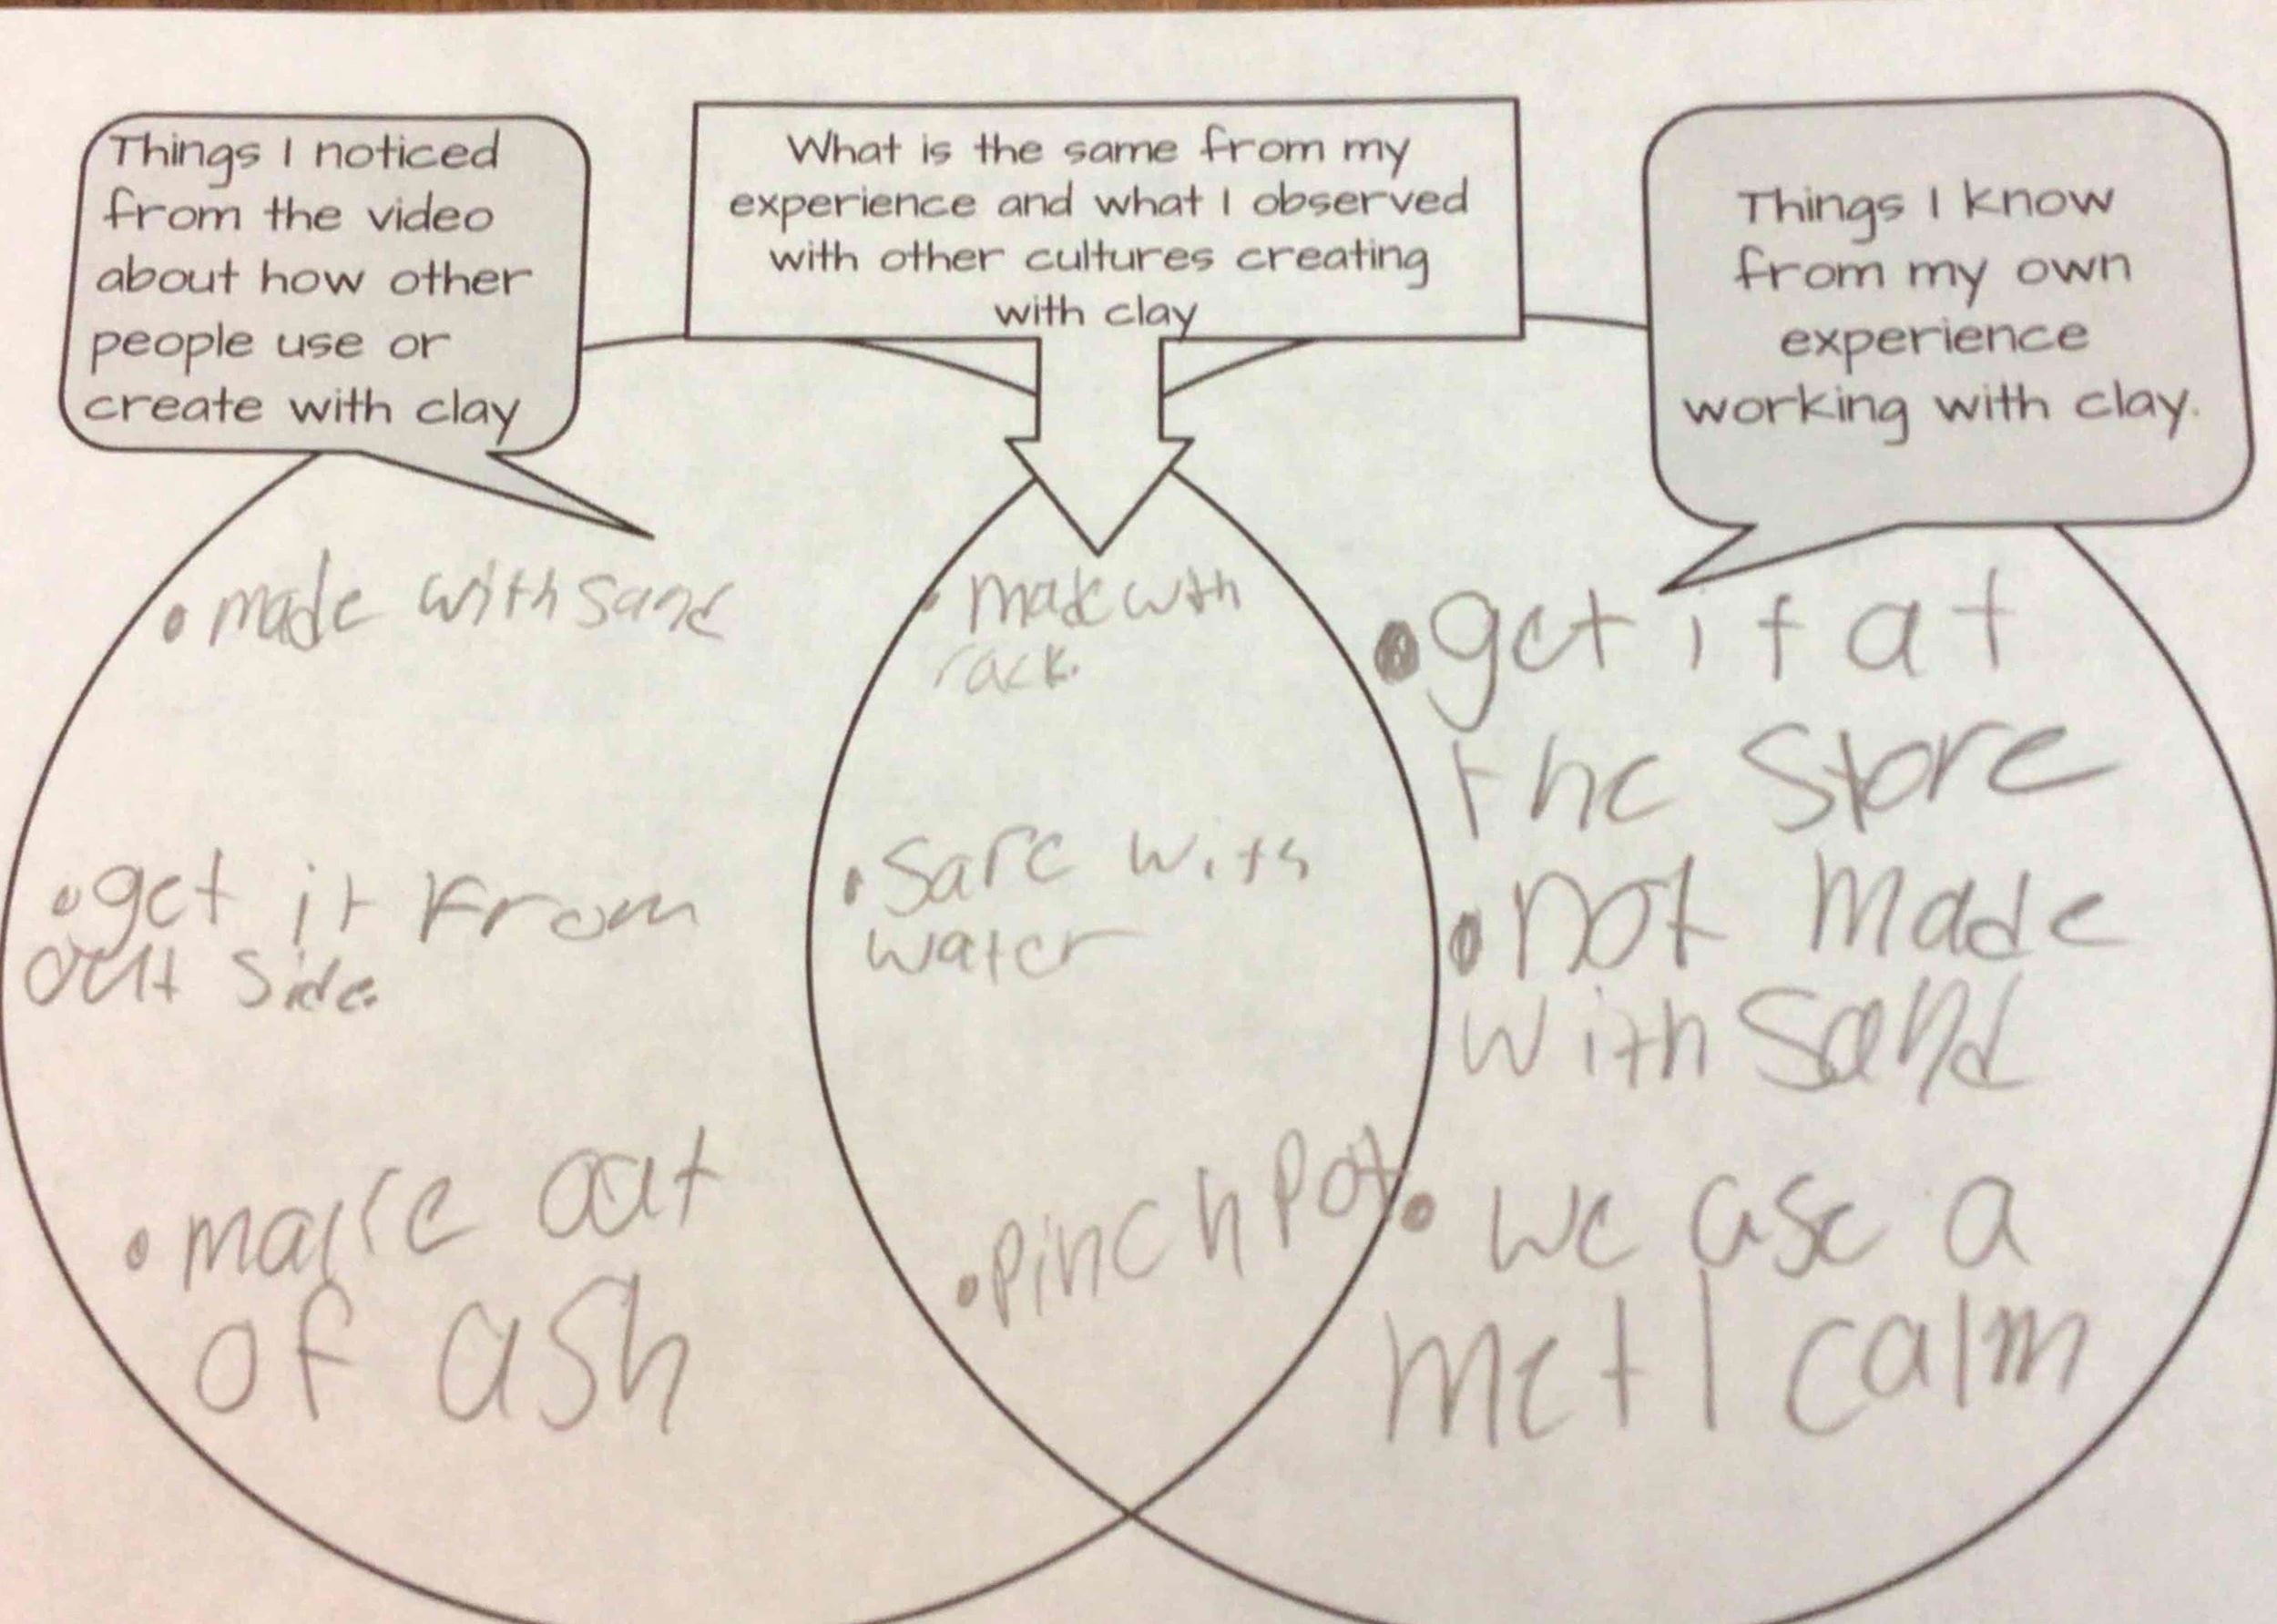 Things I noticed
from the video
about how other
people use or
create with clay
What is the same from my
experience and what I observed
with other cultures creating
with clay
Things I know
from my own
experience
working with clay.
• made with sand
• get it from
out side.
• make out
of ash
• made with
rack.
• safe with
water
• pinch pot
• get it at
the store
• not made
with sand
• we use a
metl calm